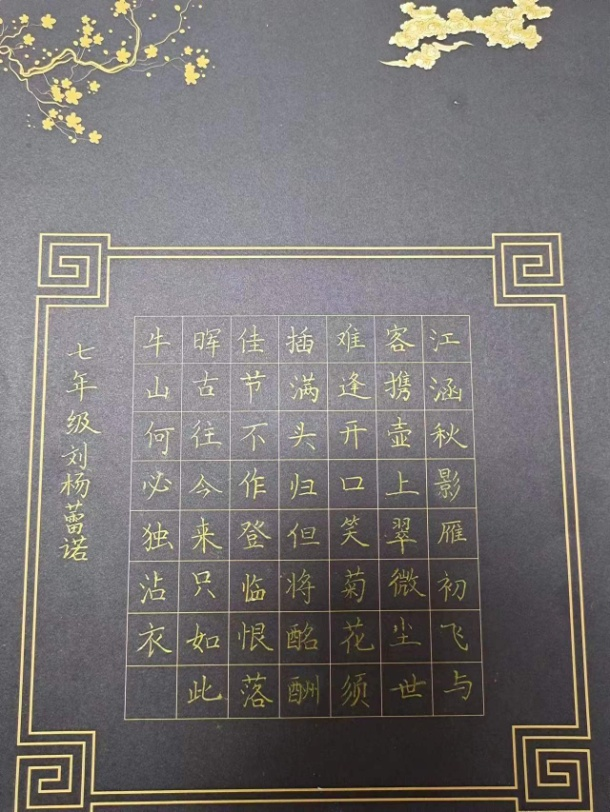 江涵秋影雁初飞与
客携壶上翠微尘世
难逢开口笑菊花须
插满头归但将酩酬
佳节不作登临恨落
晖古往今来只如此
牛山何必独沾衣
七年级刘杨蕾诺